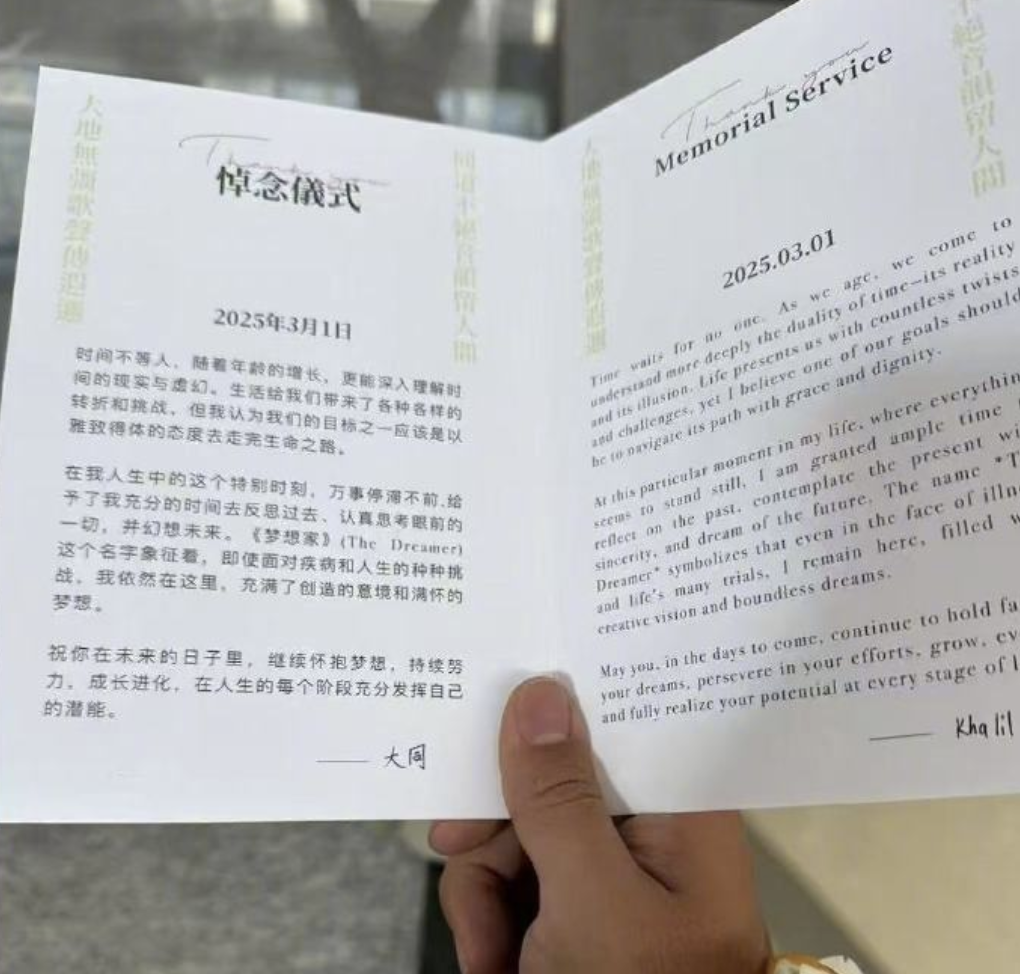 Thank you
悼念儀式
2025年3月1日
时间不等人，随着年龄的增长，更能深入理解时
间的现实与虚幻。生活给我们带来了各种各样的
转折和挑战，但我认为我们的目标之一应该是以
雅致得体的态度去走完生命之路。
在我人生中的这个特别时刻，万事停滞不前,给
予了我充分的时间去反思过去、认真思考眼前的
一切，并幻想未来。《梦想家》(The Dreamer)
这个名字象征着，即使面对疾病和人生的种种挑
战，我依然在这里，充满了创造的意境和满怀的
梦想。
祝你在未来的日子里，继续怀抱梦想，持续努
力，成长进化，在人生的每个阶段充分发挥自己
的潜能。
—— 大同
大地無聲歌聲傳遐邇
音韻留人間
Thank you
Memorial Service
2025.03.01
Time waits for no one. As we age, we come to
understand more deeply the duality of time—its reality
and its illusion. Life presents us with countless twists
and challenges, yet I believe one of our goals should
be to navigate its path with grace and dignity.
At this particular moment in my life, where everything
seems to stand still, I am granted ample time
reflect on the past, contemplate the present
sincerity, and dream of the future. The name
Dreamer" symbolizes that even in the face of
and life's many trials, I remain here, filled
creative vision and boundless dreams.
May you, in the days to come, continue to hold
your dreams, persevere in your efforts, grow,
and fully realize your potential at every stage of
—— Khalil
音韻留人間